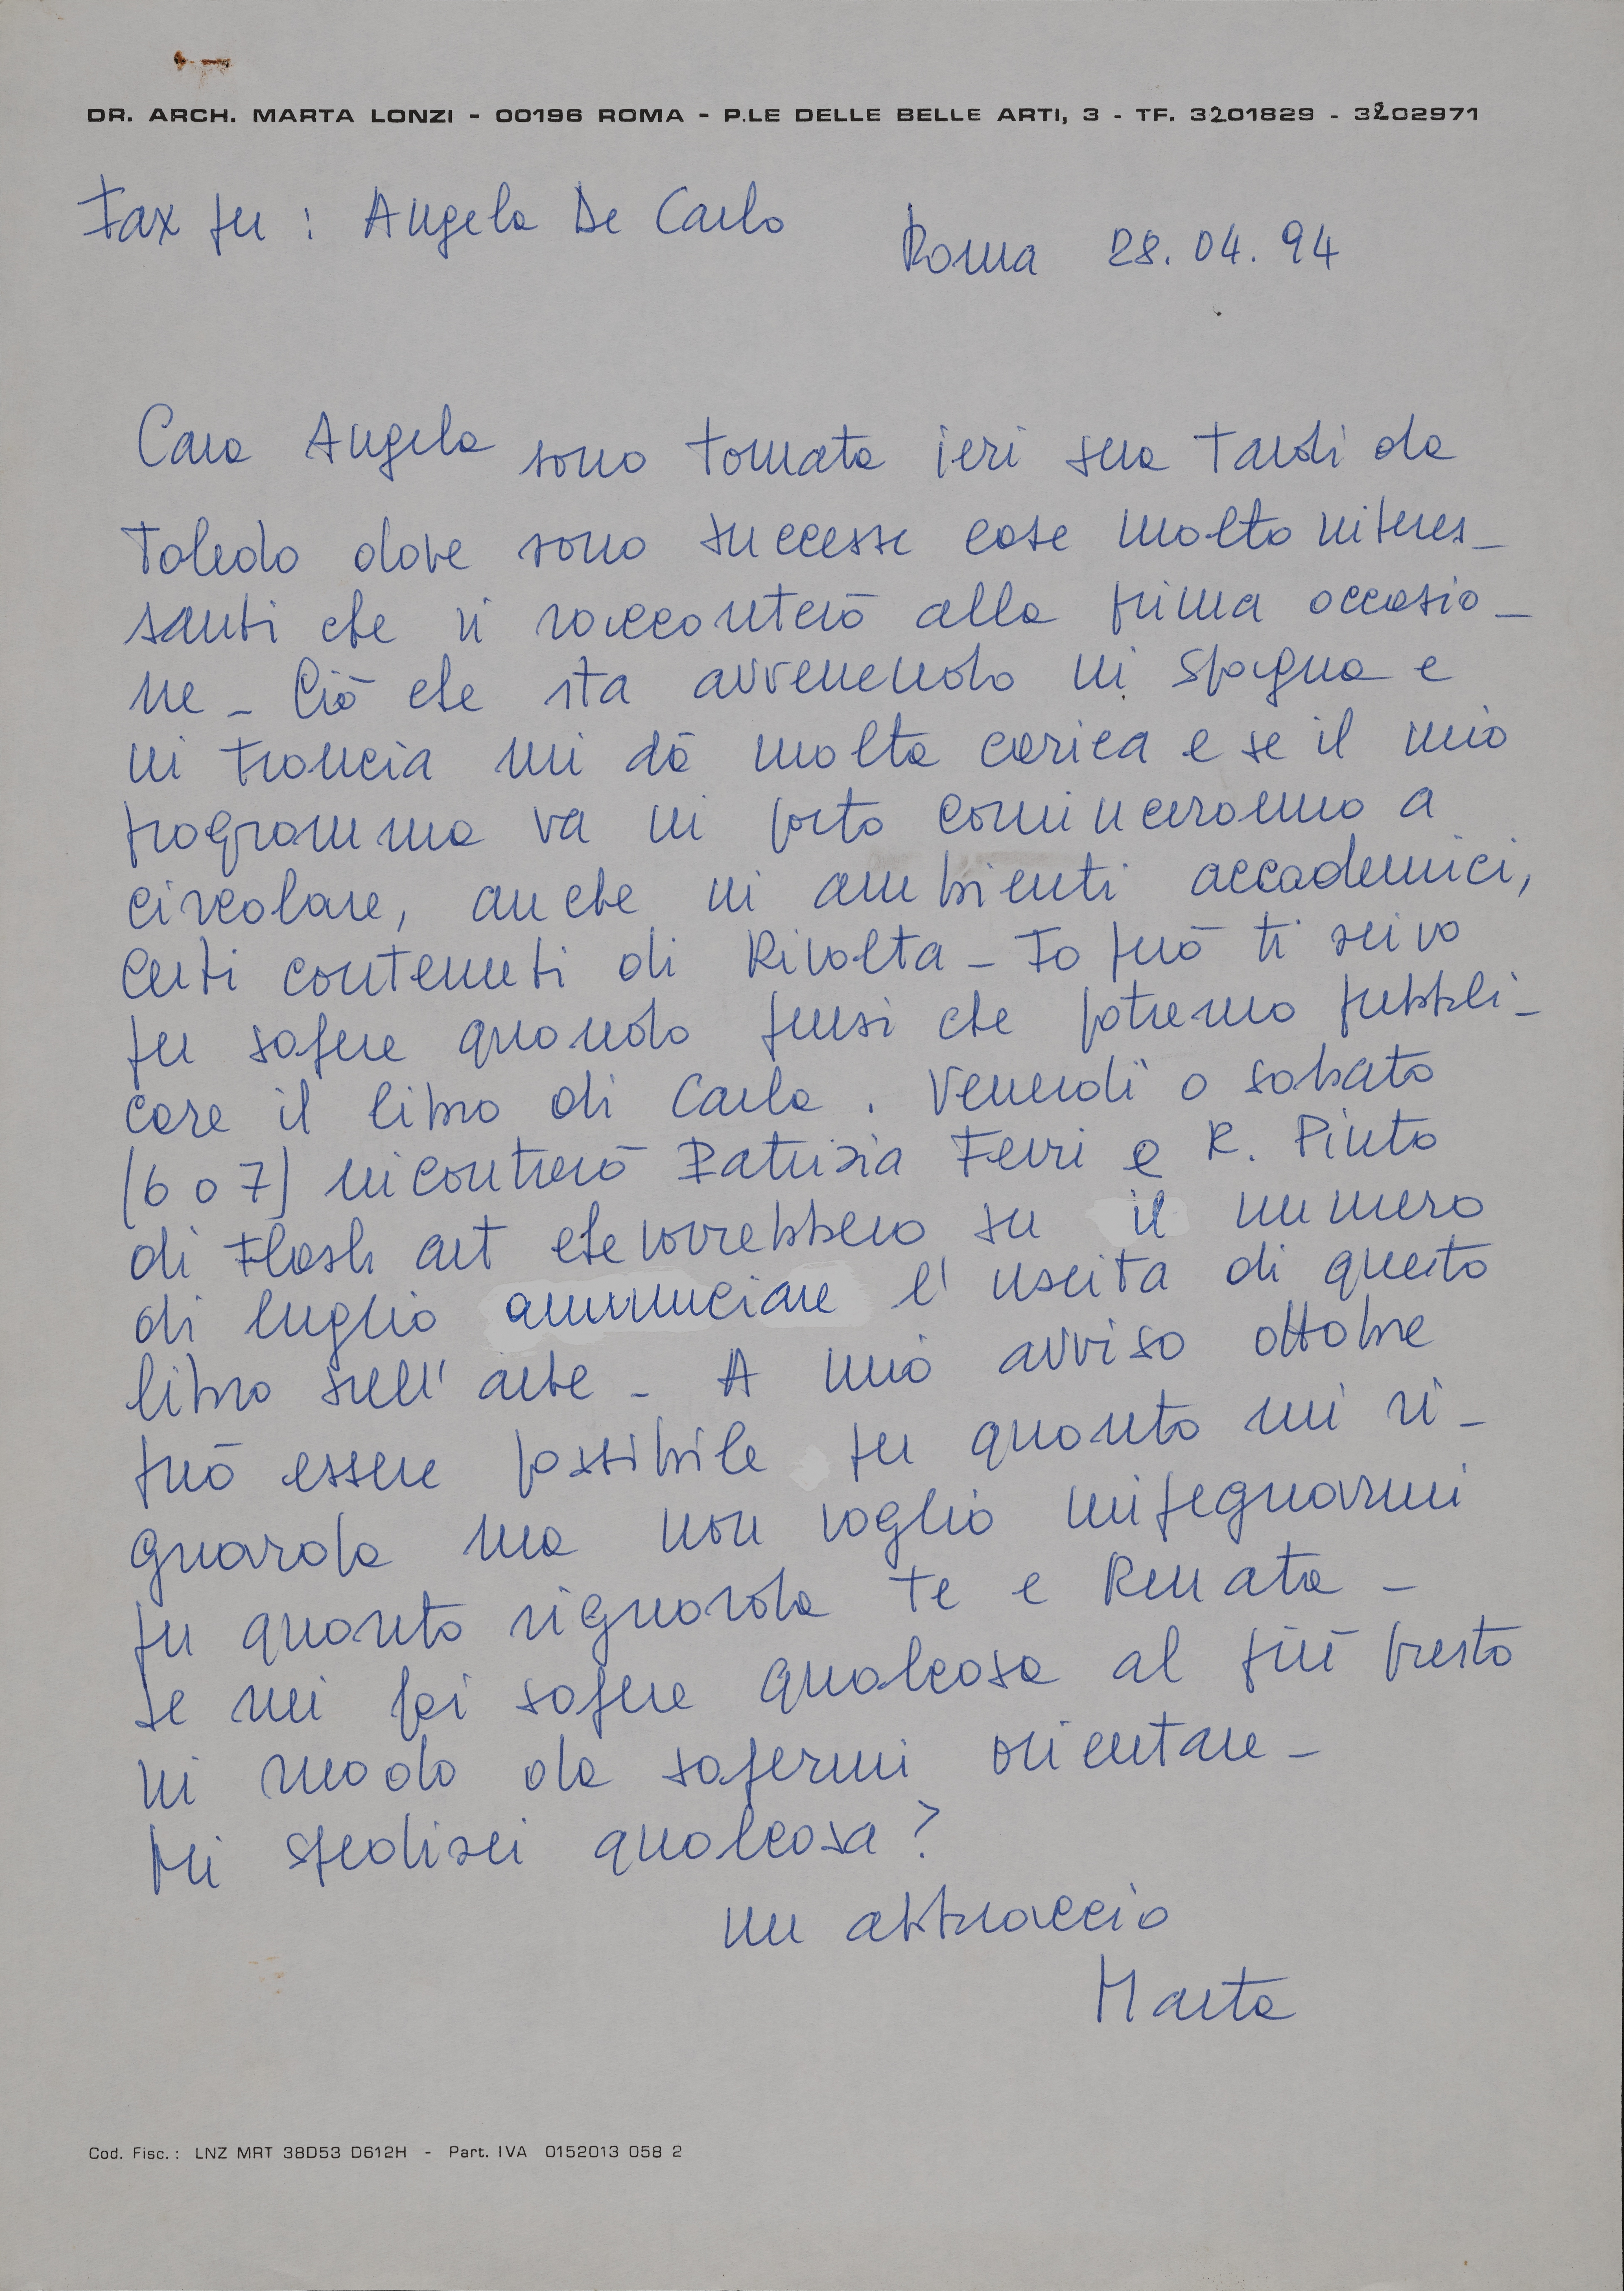 DR. ARCH. MARTA LONZI - 00196 ROMA - P.LE DELLE BELLE ARTI, 3 - TF. 3201829 - 3202971
Fax per : Angela De Carlo
Roma 28.04.94
Cara Angela sono tornata ieri sera tardi da
Toledo dove sono successe cose molto interes_
santi che vi racconterò alla prima occasio_
ne_ Ciò che sta avvenendo in Spagna e
in Francia mi dà molta carica e se il mio
programma va in porto cominceranno a
circolare, anche in ambienti accademici,
certi contenuti di Rivolta_ Io però ti scrivo
per sapere quando pensi che potremo pubbli_
care il libro di Carla. Venerdì o sabato
(6 o 7) incontrerò Patrizia Ferri e R. Pinto
di Flash art che vorrebbero su il numero
di luglio annunciare l'uscita di questo
libro sull'arte_ A mio avviso ottobre
può essere possibile per quanto mi ri_
guarda ma non voglio impegnarmi
per quanto riguarda te e Renata_
Se mi fai sapere qualcosa al più presto
in modo da sapermi orientare_
Mi spedisci qualcosa?
un abbraccio
Marta
Cod. Fisc.: LNZ MRT 38D53 D612H - Part. IVA 0152013 058 2